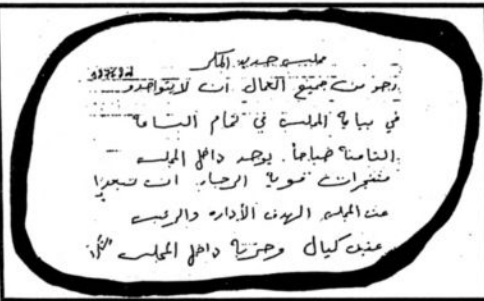 مجلس جديدة المكر
نرجو من جميع العمال ان لا يتواجدو
في بناية المجلس في تمام الساعة
الثامنة صباحاً. يوجد داخل المجلس
متفجرات قوية الرجاء ان تبتعدوا
عن المجلس الهدف الأدارة والرئيس
داخل المجلس